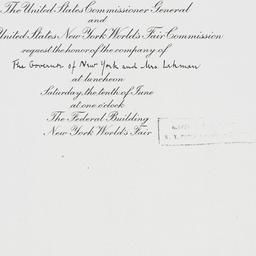 The United States Commissioner General
and
United States New York World's Fair Commission
request the honor of the company of
The Governor of New York and Mrs. Lehman
at luncheon
Saturday, the tenth of June
at one o'clock
The Federal Building
New York World's Fair